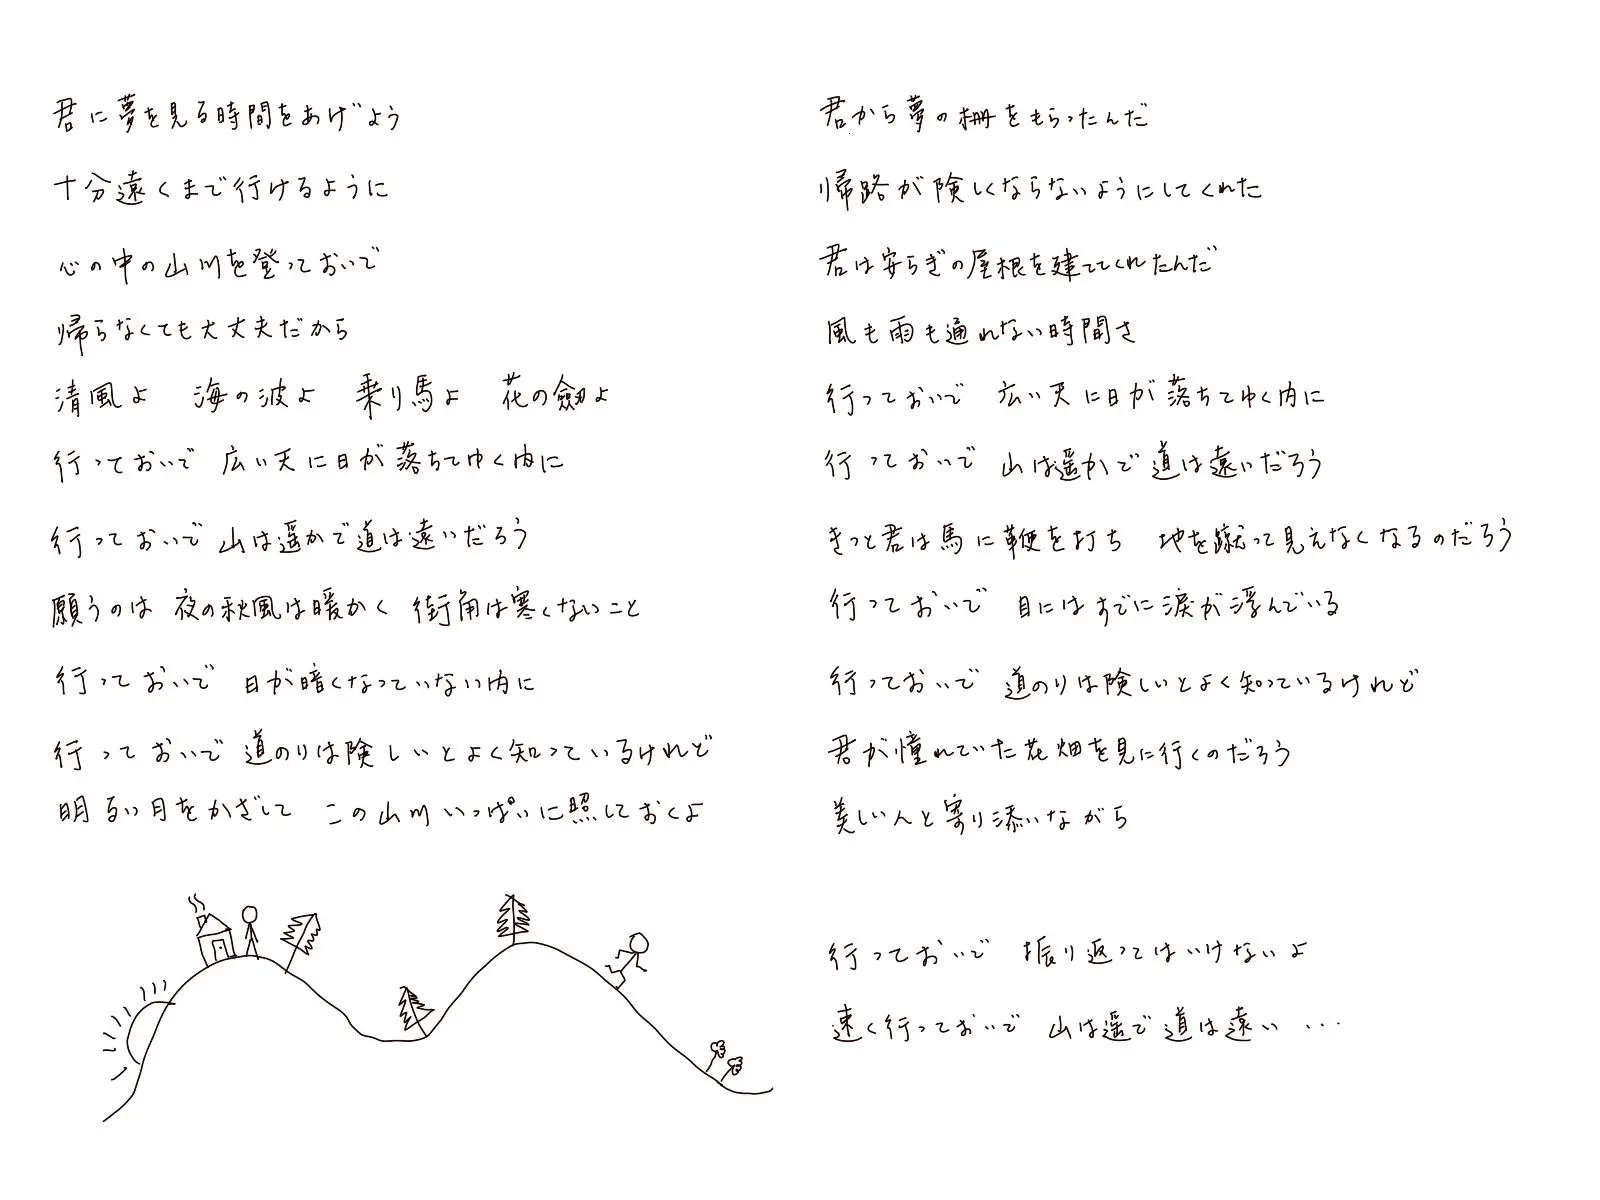 君に夢を見る時間をあげよう
十分遠くまで行けるように
心の中の山川を登っておいで
帰らなくても大丈夫だから
清風よ 海の波よ 乗り馬よ 花の劔よ
行っておいで 広い天に日が落ちてゆく内に
行っておいで 山は遥かで道は遠いだろう
願うのは 夜の秋風は暖かく 街角は寒くないこと
行っておいで 日が暗くなっていない内に
行っておいで 道のりは険しいとよく知っているけれど
明るい月をかざして この山川いっぱいに照しておくよ
君から夢の柵をもらったんだ
帰路が険しくならないようにしてくれた
君は安らぎの屋根を建ててくれたんだ
風も雨も通れない時間さ
行っておいで 広い天に日が落ちてゆく内に
行っておいで 山は遥かで道は遠いだろう
きっと君は馬に鞭を打ち 地を蹴って見えなくなるのだろう
行っておいで 目にはすでに涙が浮んでいる
行っておいで 道のりは険しいとよく知っているけれど
君が憧れていた花畑を見に行くのだろう
美しい人と寄り添いながら
行っておいで 振り返ってはいけないよ
速く行っておいで 山は遥で道は遠い …